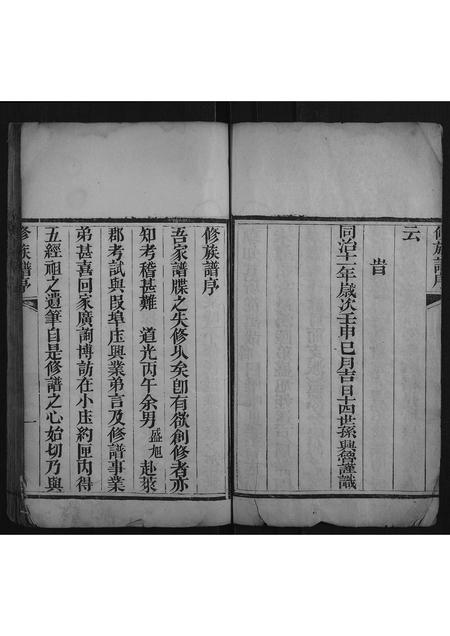 修族譜序
云
旹
同治十一年歲次壬申巳月吉日十四世孫興營謹識
修族譜序
吾家譜牒之失修久矣卽有欲創修者亦
知考稽甚難 道光丙午余男 盛旭 赴萊
郡考試與叚埠庄興業弟言及修譜事業
弟甚喜回家廣詢博訪在小庄約匣內得
五經祖之遺筆自是修譜之心始切乃與
修族譜序
一